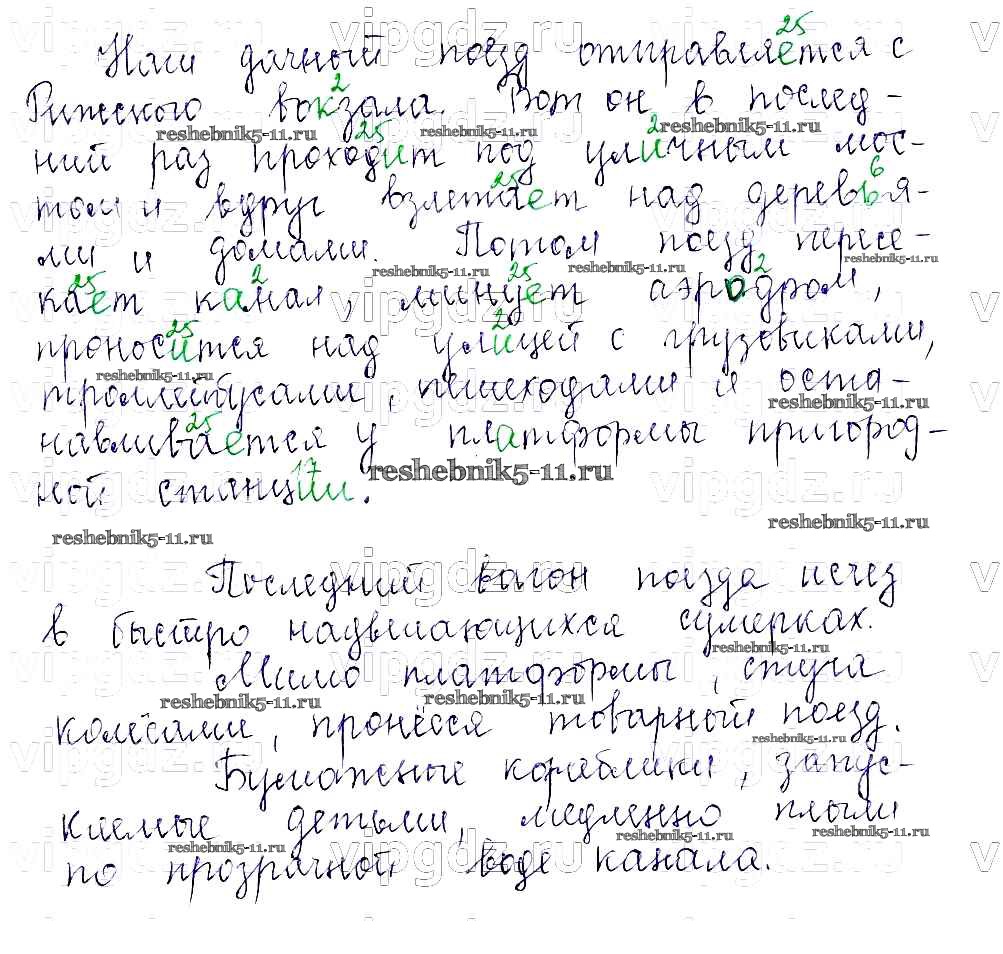 Наш дачный поезд отправляется с
Рижского вокзала. Вот он в послед-
ний раз проходит под уличным мос-
том и вдруг взлетает над деревья-
ми и домами. Потом поезд пересе-
кает канал, минует аэродром,
проносится над улицей с грузовиками,
троллейбусами, пешеходами и оста-
навливается у платформы пригород-
ной станции.
reshebnik5-11.ru
Последний вагон поезда исчез
в быстро надвигающихся сумерках.
Мимо платформы, стуча
колёсами, пронёсся товарный поезд.
Бумажные кораблики, запус-
каемые детьми, медленно плыли
по прозрачной воде канала.